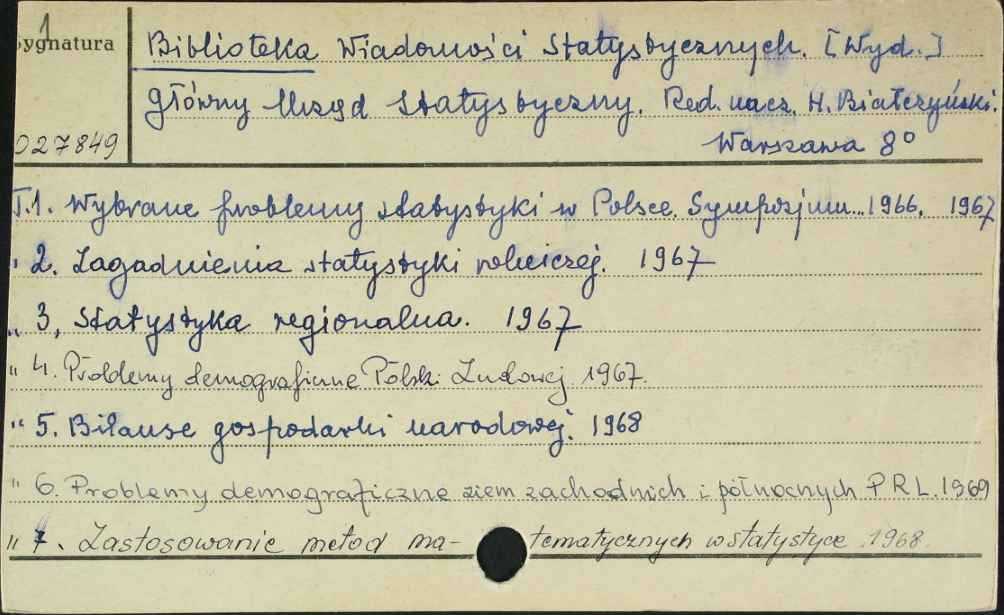 1
Sygnatura
Biblioteka Wiadomości Statystycznych. [Wyd.]
Główny Urząd Statystyczny. Red. nacz. H. Białczyński.
027849
Warszawa 8°
T.1. Wybrane problemy statystyki w Polsce. Sympozjum...1966. 1967
" 2. Zagadnienia statystyki rolniczej. 1967
" 3. Statystyka regionalna. 1967
" 4. Problemy demograficzne Polski Ludowej. 1967.
" 5. Bilanse gospodarki narodowej. 1968
" 6. Problemy demograficzne ziem zachodnich i północnych PRL. 1969
" 7. Zastosowanie metod ma- tematycznych w statystyce 1968.